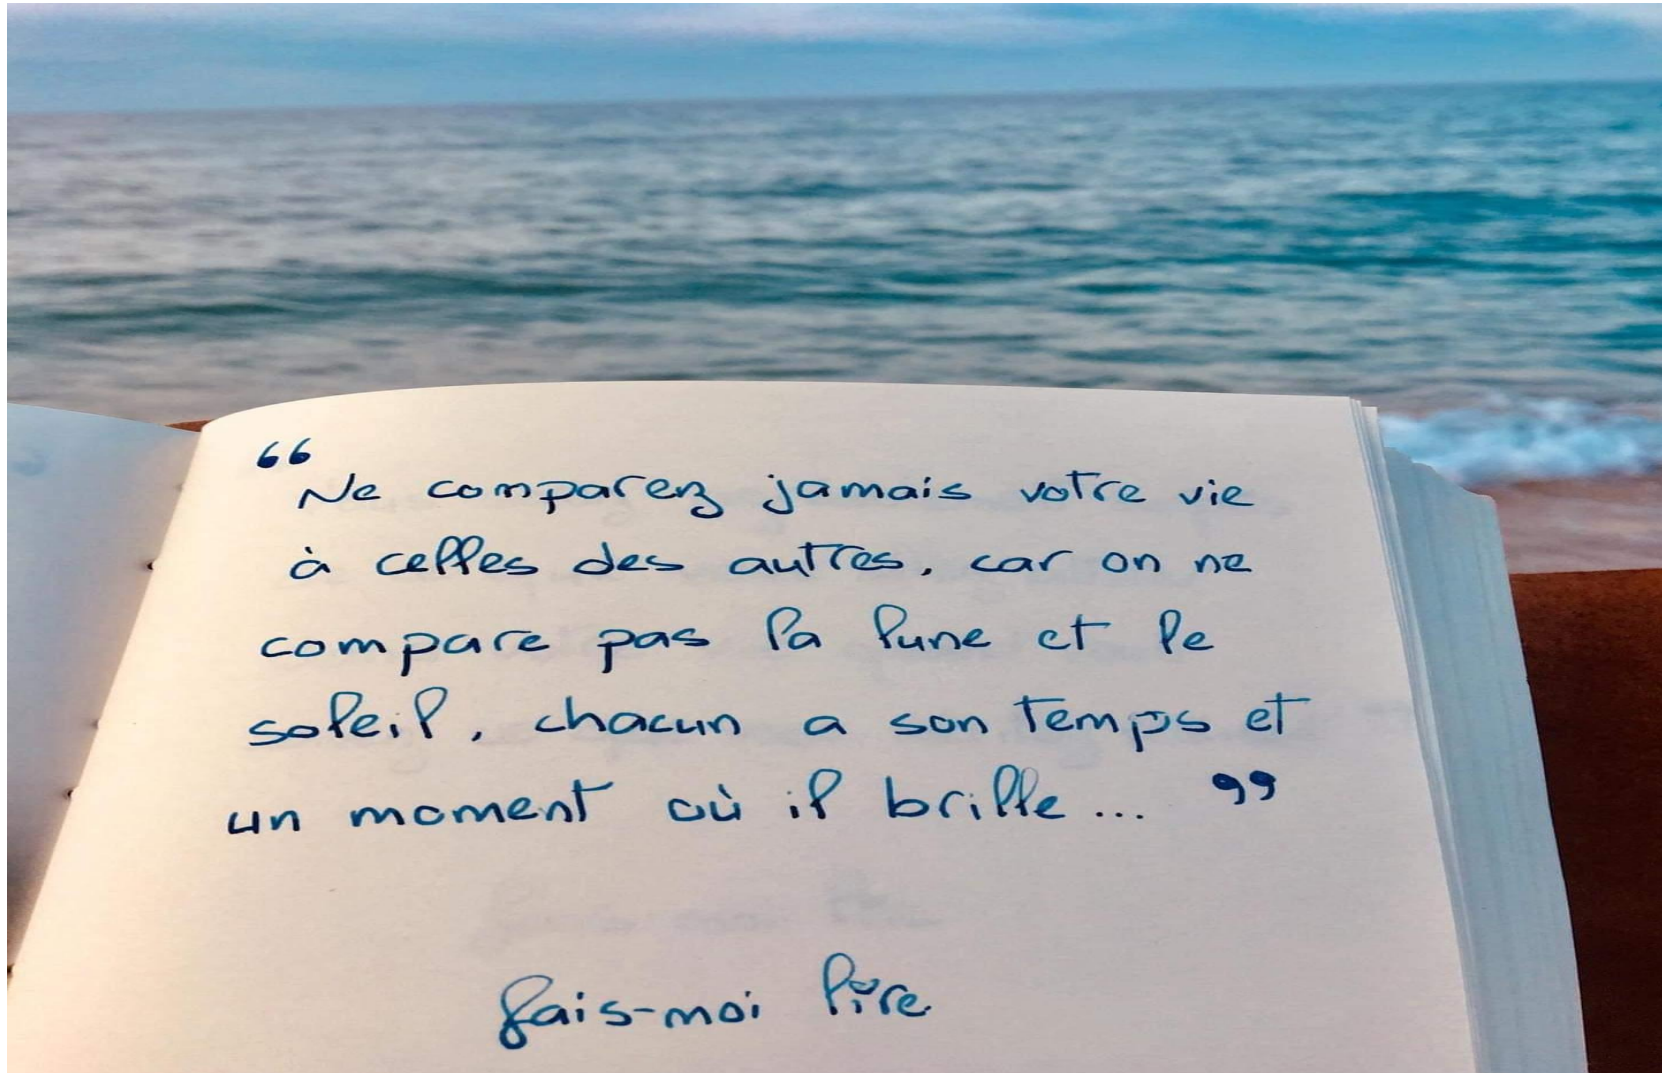 “ Ne comparez jamais votre vie
à celles des autres, car on ne
compare pas la lune et le
soleil, chacun a son temps et
un moment où il brille... ”
fais-moi lire